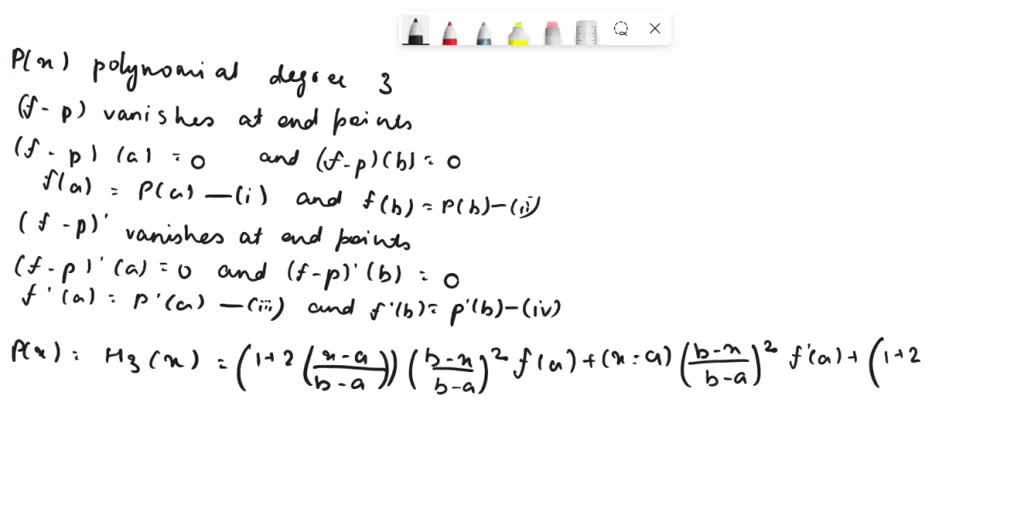 P(x) polynomial degree 3
(f-p) vanishes at end points
(f-p)(a) = 0 and (f-p)(b) = 0
f(a) = P(a) —(i) and f(b) = P(b) —(ii)
(f-p)' vanishes at end points
(f-p)'(a) = 0 and (f-p)'(b) = 0
f'(a) = P'(a) —(iii) and f'(b) = p'(b) —(iv)
P(x) = H₃(x) = (1+2((x-a)/(b-a)))((b-x)/(b-a))² f(a) + (x-a)((b-x)/(b-a))² f'(a) + (1+2